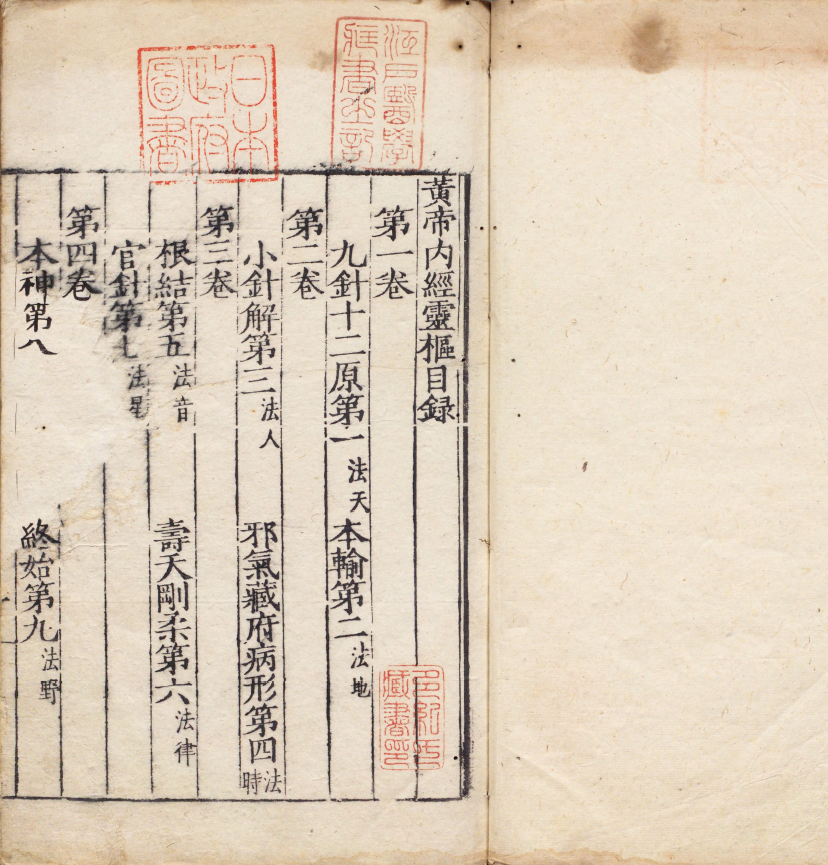 日本
政府
圖書
江戶醫學
藏書之記
黃帝內經靈樞目録
第一卷
九針十二原第一法天 本輸第二法地
第二卷
小針解第三法人 邪氣藏府病形第四法時
第三卷
根結第五法音 壽夭剛柔第六法律
官針第七法星
第四卷
本神第八 終始第九法野
藏書